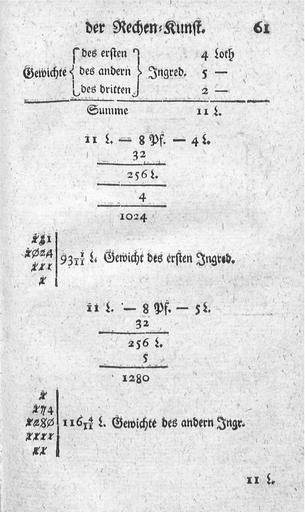 der Rechen-Kunst. 61
des ersten 4 Loth
Gewichte des andern Ingred. 5 —
des dritten 2 —
Summe 11 L.
11 L. — 8 Pf. — 4 L.
32
256 L.
4
1024
93 1/11 L. Gewicht des ersten Ingred.
11 L. — 8 Pf. — 5 L.
32
256 L.
5
1280
116 4/11 L. Gewichte des andern Ingr.
11 L.